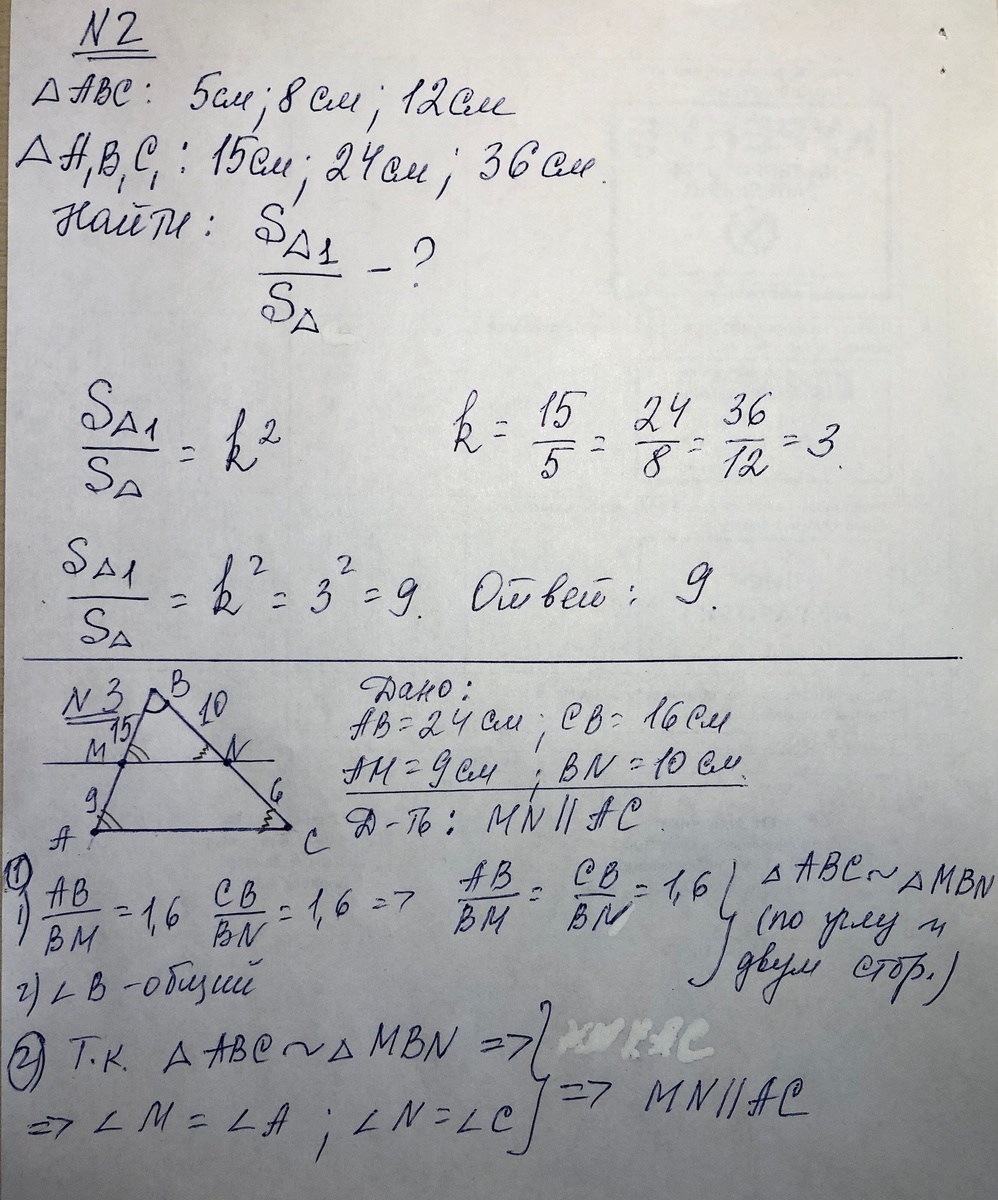 N2
△ABC: 5см; 8см; 12см
△A₁B₁C₁: 15см; 24см; 36см.
Найти: S△1/S△ - ?
S△1/S△ = k² k = 15/5 = 24/8 = 36/12 = 3.
S△1/S△ = k² = 3² = 9. Ответ: 9.
N3
B
15 10
M N
9 6
A C
Дано:
AB = 24 см; CB = 16 см
AM = 9 см; BN = 10 см.
Д-ть: MN || AC.
①
1) AB/BM = 1,6 CB/BN = 1,6 => AB/BM = CB/BN = 1,6 } △ABC ~ △MBN
(по углу и
двум стор.)
2) ∠B - общий
② Т.к. △ABC ~ △MBN =>
=> ∠M = ∠A; ∠N = ∠C } => MN || AC